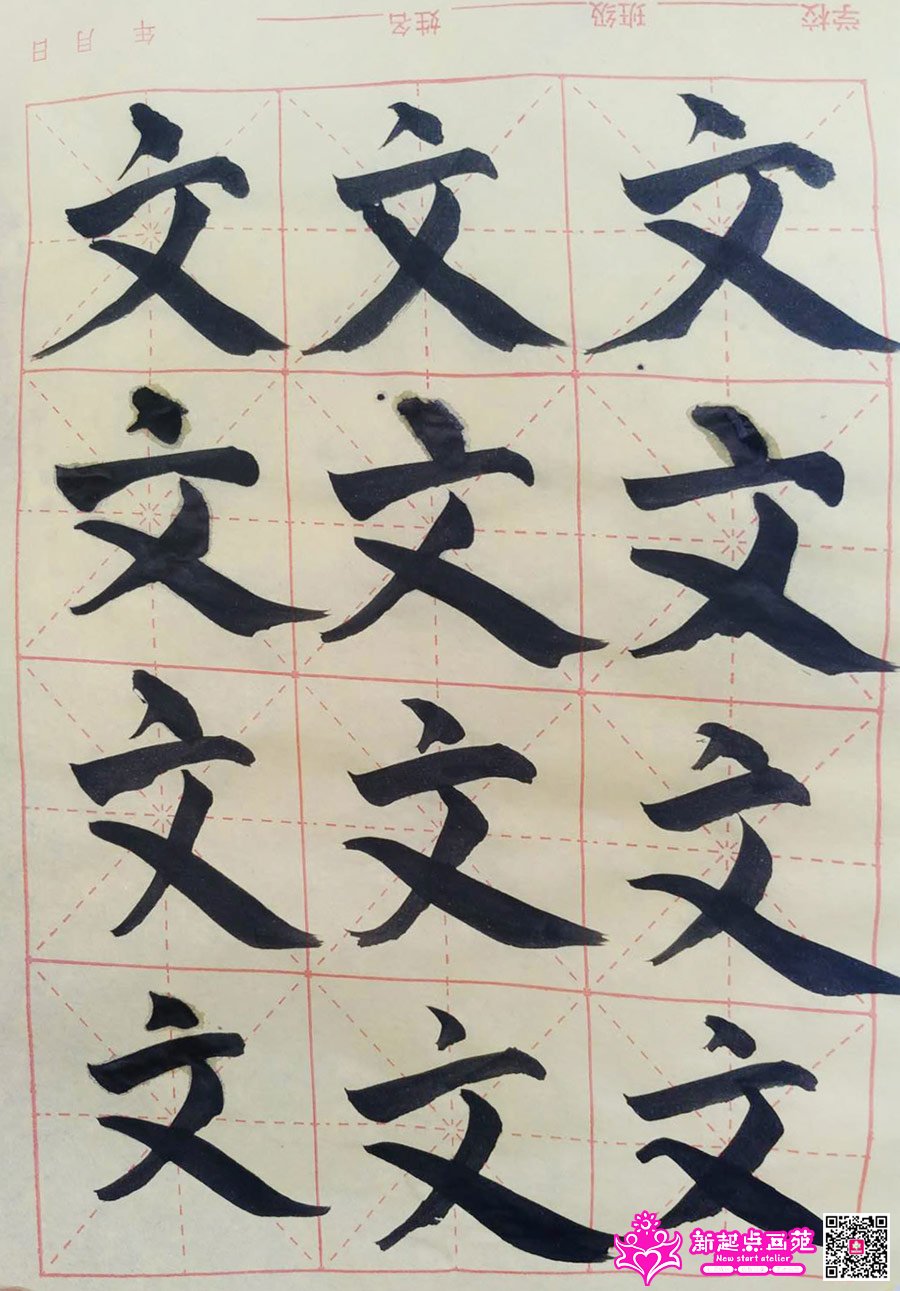 学校 班级 姓名 年 月 日
文 文 文
文 文 文
文 文 文
文 文 文
新起点画苑
New start atelier